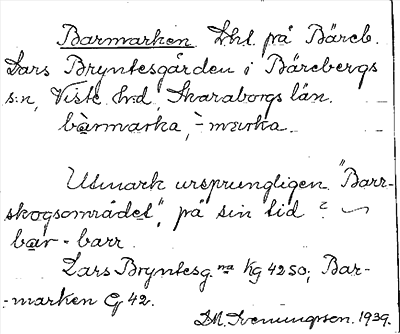 Barmarken Lht. på Bäreb.
Lars Bryntesgården i Bärebergs
s:n, Viste hrd, Skaraborgs län.
bàrmarka, -̀ marka.
Utmark ursprungligen. "Barr-
skogsområdet", på sin tid?
bar- barr.
Lars Bryntesg. na Kg 4250; Bar-
-marken G 42.
1939.